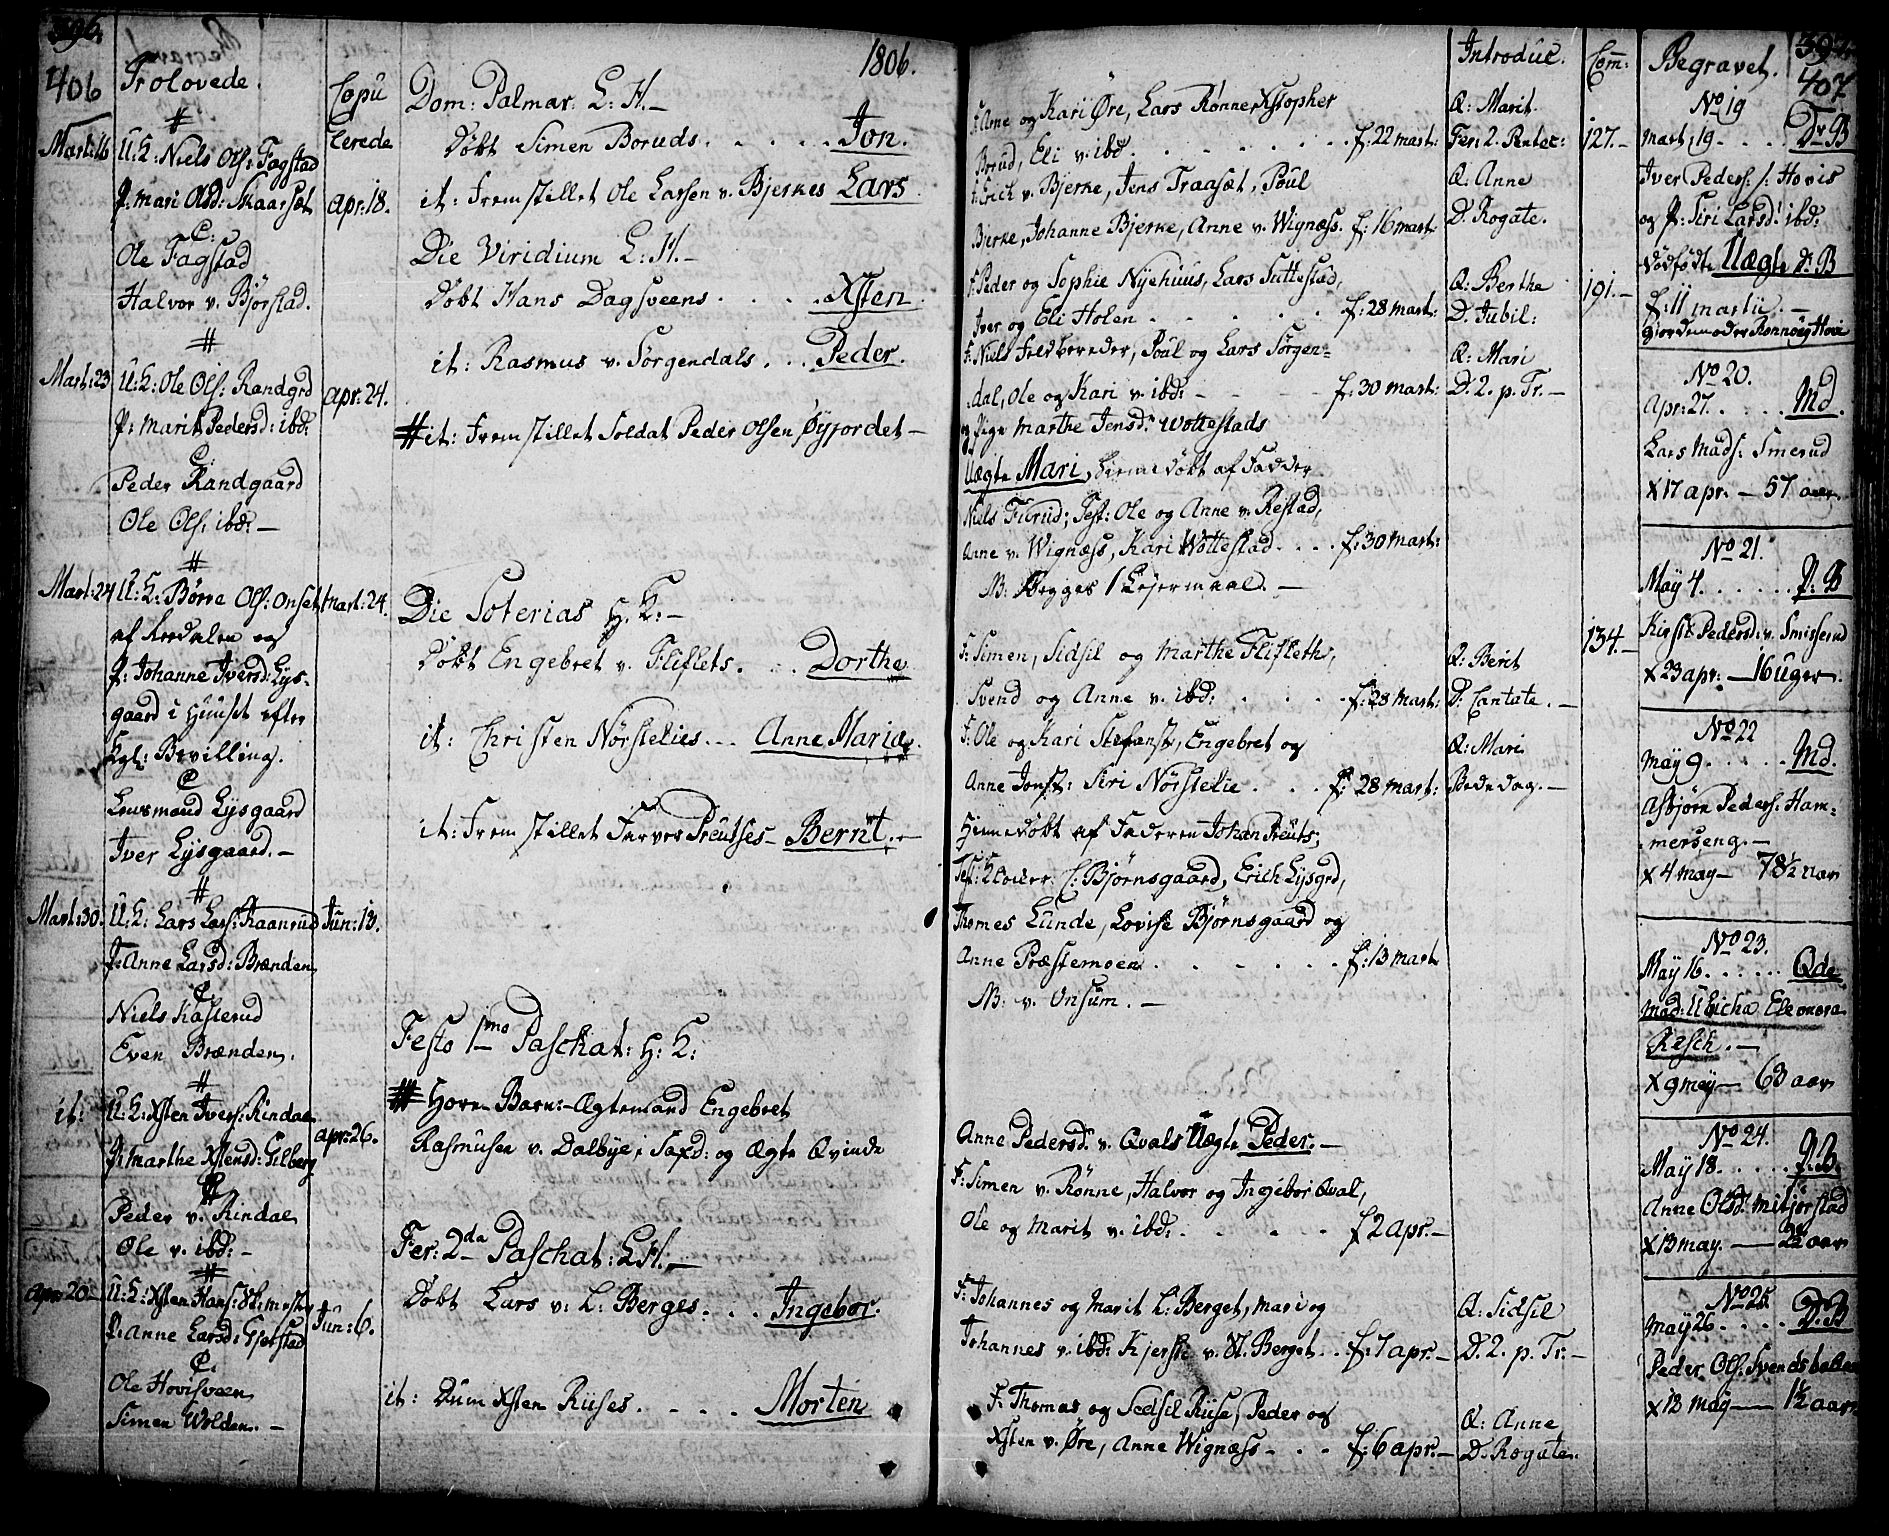 396.
406
Trolovede.
Copu
lerede
1806.
Mart: 16
U: K: Niels Ols: Fagstad
P: Mari Olsd: Skaarsæt
apr: 18.
C:
Ole Fagstad
Halvor v. Bjørstad.
Mart: 23
U: K: Ole Ols: Randgrd
P: Marit Pedersd: ibd:
apr: 24.
C:
Peder Randgaard
Ole Ols: ibd: —
Mart: 24
U: K: Børre Ols: Onset
mart: 24.
af Aerdalen og
P: Johanne Iversd: Lys-
gaard i Huuset efter
Kgl: Bevilling.
C
Lensmand Lysgaard
Iver Lysgaard. —
Mart: 30.
U: K: Lars Lars: Kaanrud
Jun: 13.
P: Anne Larsd: Brænden
C
Niels Kasterud
Even Brænden.
it:
U: K: Xsten Ivers: Rindal
P: Marthe Xstensd: Gilberg
apr: 26.
Peder v. Rindal
Ole v. ibd: —
apr: 20 —
U: K: Xsten Hans:
P: Anne Larsd: Gjerstad
Jun: 6.
C.
Ole Hovisveen
Simen Wolden. —
Dom: Palmar: L: H. —
Døbt Simen Boruds. . . . . Jon.
it: Fremstillet Ole Larsen v. Bjerkes Lars
Die Viridium L: H. —
Døbt Hans Dagsveens. . . . . Xsten
it: Rasmus v. Sørgendals. . . Peder.
it: Fremstillet Soldat Peder Olsen Øyjordet —
Die Soterias H. K: —
Døbt Engebret v. Fliflets. . . Dorthe
it: Christen Nørstelies. — Anne Maria.
it: Fremstillet Farver Preutses — Bernt. —
Festo 1mo Paschat: H: K:
Horn Barn: — Ægtemand Engebret
Rasmusen v. Dalbye i Saxd: og Ægte Qvinde
Fer: 2da Paschat: L: H. —
Døbt Lars v: L: Berges. . . Ingebor.
it: Dum Xsten Riises. . . . . Morten
397.
407
Introduc.
Com:
Begravet.
F: Arne og Kari Øre, Lars Rønne, Xstopher
Brud, Eli v. ibd. . . . . . . f: 22 mart:
Q: Marit
Fer: 2. Pentec:
127. —
F: Erich v. Bjerke, Jens Traasæt, Poul
Bjerke, Johanne Bjerke, Anne v. Wignæss. f: 16 mart:
Q: Anne
D. Rogate.
F: Peder og Sophie Nyehuus, Lars Suttestad,
Iver og Eli Holen . . . . . f: 28 mart:
Q: Berthe
D. Jubil:
191. —
F: Niels Feldbereder, Poul og Lars Sørgen-
dal, Ole og Kari v. ibd: — — — f: 30 mart:
Q: Mari
D. 2. p. Tr. —
og Pige Marthe Jensd: Wottestads
Uægte Mari, hiemedøbt af Fadder
Niels Furud; Test: Ole og Anne v. Restad,
Anne v. Wignæss, Kari Wottestad. . . . f: 30 mart:
NB: Begges 1 Lejermaal. —
134. —
F: Simen, Sidsil og Marthe Flifleth,
Svend og Anne v. ibd: . . . . f: 28 mart:
Q: Berit
D: Cantate. —
F: Ole og Kari Stefanst, Engebret og
Anne Jonst: Siri Nørstelie . . . f: 28 mart:
Q: Mari
Bededag. —
Hiemedøbt af Faderen Johan Preuts;
Test: Klocker C: Bjørnsgaard, Erich Lysgrd,
Thomes Lunde, Lovise Bjørnsgaard og
Anne Præstemoen . . . . . f: 13 mart
NB: v. Onsum. —
Anne Pedersd. v. Qvals Uægte Peder. —
F: Simen v. Rønne, Halvor og Ingebor Qval,
Ole og Marit v. ibd: . . . . f 2 apr: —
F: Johannes og Marit L: Berget, Mari og
Johannes v. ibd: Kjersti v. St. Berget . . f: 7 apr: —
Q: Sidsil
D. 2. p. Tr: —
F: Thomas og Sidsil Riise, Peder og
Xsten v. Øre, Anne Wignæss — . . f: 6 apr: —
Q: Anne
D: Rogate.
No 19
Mart: 19 . . . . Dr B
Iver Peders: s: Hovis
og P: Siri Larsd: ibd:
dødfødte Uægte D: B
f: 11 martii. —
Giordemoder Rønnoug Hovi
No 20.
Apr: 27. . . . . Md.
Lars Mads: Smerud
X 17 apr. — 57 aar.
No 21.
May 4. . . . . . P: B
Kirsti Pedersd: v. Smisserud
X 23 apr: — 16 uger.
No 22
May 9. . . . . . Md.
Asbjørn Peders. Ham-
merseng. —
X 4 may — 78 1/2 aar
No 23.
May 16. . . . . . Qde
Mad: Ulricha Eleonora
Resch. —
X 9 may — 63 aar
No 24.
May 18. . . . . . P. B.
Anne Olsd. Mitjørstad
X 13 may. — 2 aar
No 25.
May 26 . . . . D: B
Peder Ols: Svendsbakken
X 18 may — 1 1/2 aar